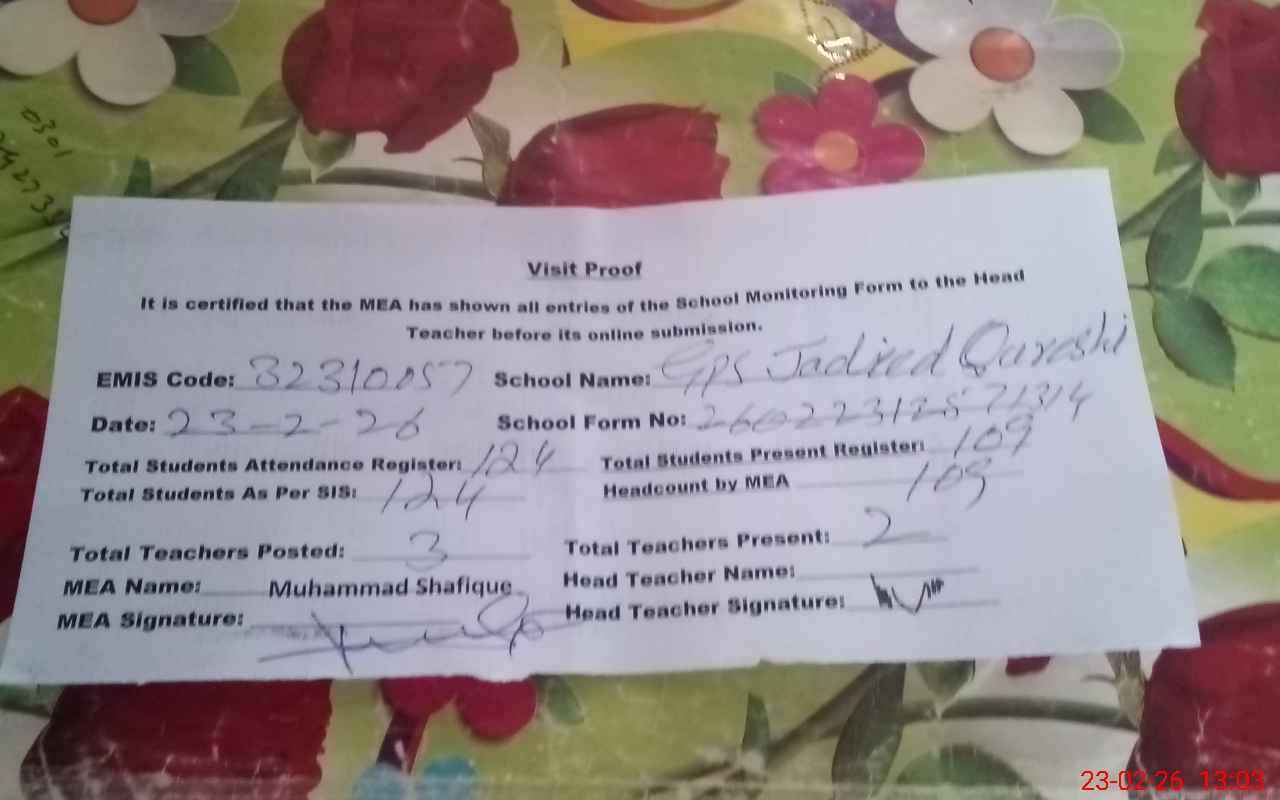 0301
Visit Proof
It is certified that the MEA has shown all entries of the School Monitoring Form to the Head
Teacher before its online submission.
EMIS Code: 32310057 School Name: GPS Jadeed Qureshi
Date: 23-2-26 School Form No:
Total Students Attendance Register: 124 Total Students Present Register: 109
Total Students As Per SIS: 124 Headcount by MEA 109
Total Teachers Posted: 3 Total Teachers Present: 2
MEA Name: Muhammad Shafique Head Teacher Name:
MEA Signature: Head Teacher Signature:
23-02-26 13:03